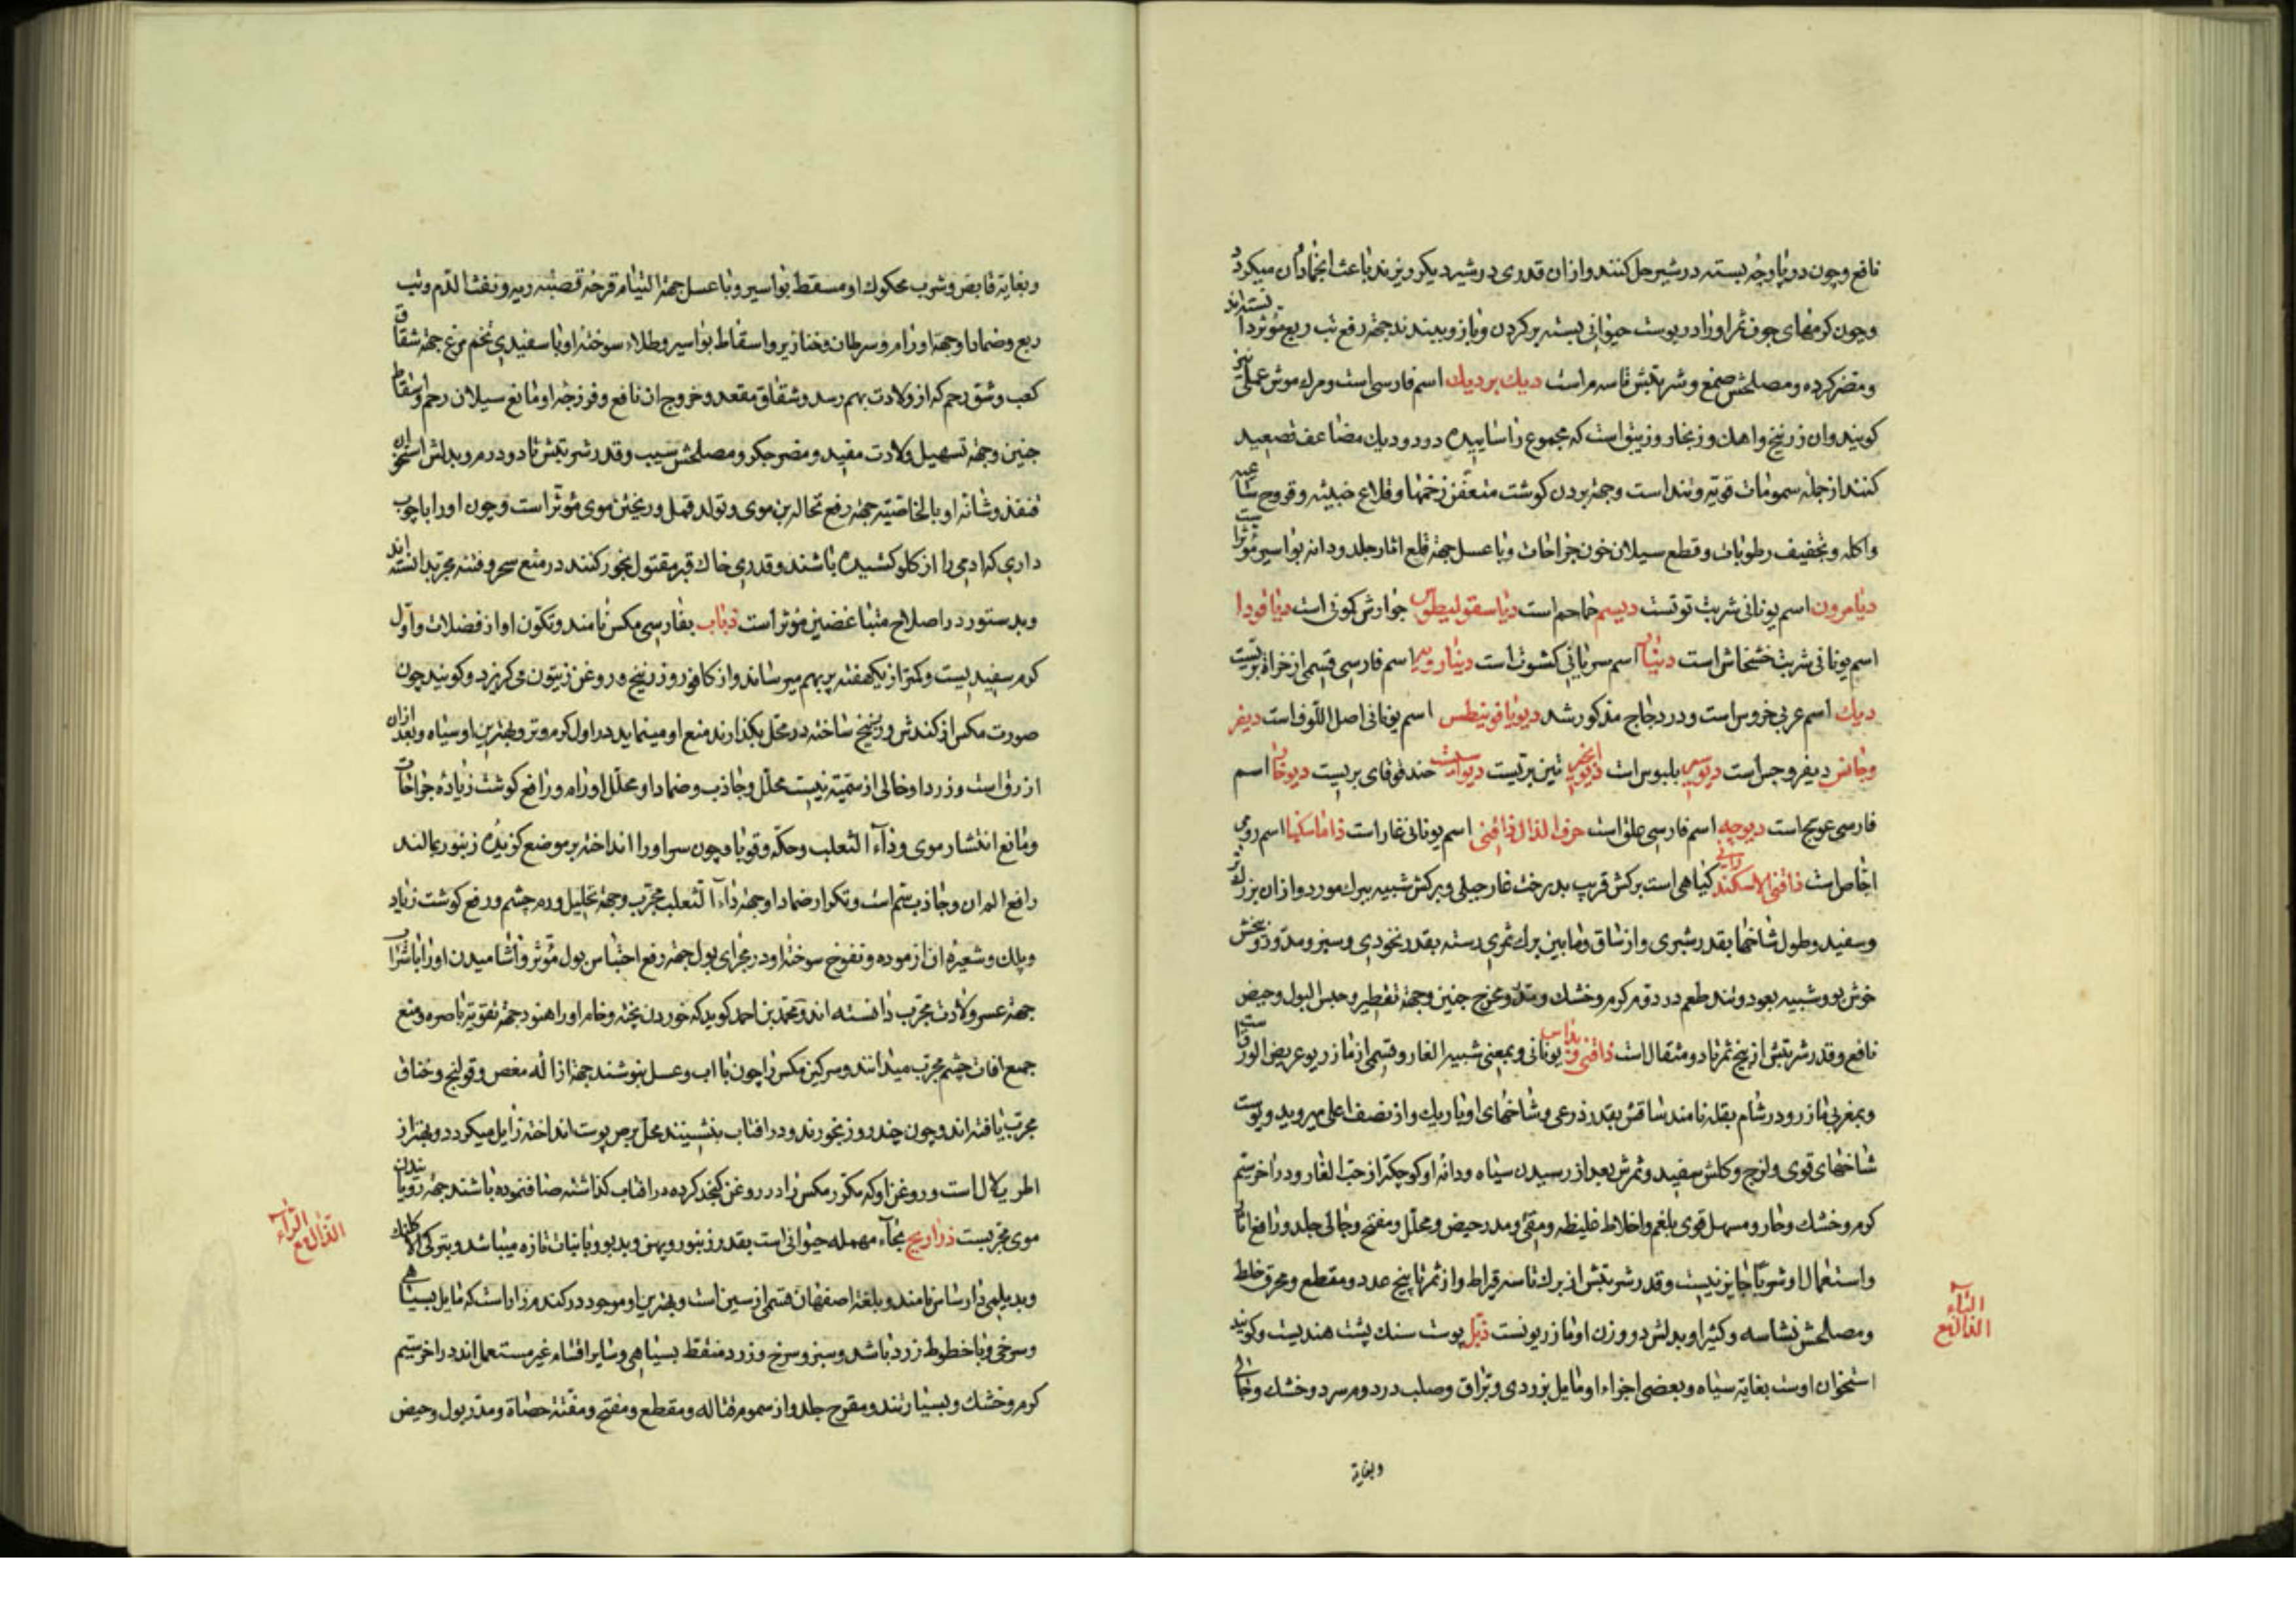 نافع و چون دو پارچه بسته در شیر حل کنند و از آن قدری در شیر دیکر ریزند باعث انجماد آن میکردد
و چون کرمهای جوف ثمر او را در پوست حیوانی بسته بر کردن و بازو بندند جهة رفع تب ربع مؤثر دانسته‌اند
و مضر کرده و مصلحش صمغ و شربتش تا سه درم است دیك بردیك اسم فارسی است و مرك موش عملی نیز
کویند و آن زرنیخ و اهك و زنجار و زیبق است که مجموع را ساییده در دو دیك مضاعف تصعید
کنند از جمله سمومات قویه و تند است و جهة بردن کوشت متعفن زخمها و قلاع خبیثه و قروح ساعیه
و آکله و تجفیف رطوبات و قطع سیلان خون جراحات و با عسل جهة قلع اثار جلد و دانه بواسیر مؤثر است
دیامرون اسم یونانی شربت توتست دیسم حماحم است دیاسقولیطوس جوارش کمونی است دیاقودا
اسم یونانی شربت خشخاش است دینار اسم سریانی کشوث است دینارویه اسم فارسی قسمی از حزاء بریست
دیك اسم عربی خروس است و در دجاج مذکور شد دیویاقونیطس اسم یونانی اصل اللوف است دیفر
وجانس دیفروجس است دیوس بلبوس است تین بریست دیواسپست حندقوقای بریست دیوخار اسم
فارسی عوسج است دیوچه اسم فارسی علق است حرف الذال ذافنی اسم یونانی غار است ذاماسکنیا اسم رومی
اجاص است ذافنی الاسکندرانی کیاهی است برکش قریب بدرخت غار جبلی و برکش شبیه ببرك مورد و از آن بزرکتر
و سفید و طول شاخها بقدر شبری و از ساق و مابین برك ثمری رسته بقدر نخودی و سبز و مدور و بیخش
خوش بو و شبیه بعود و تند طعم در دوم کرم و خشك و مدر و مخرج جنین و جهة تقطیر و حبس البول و حیض
نافع و قدر شربتش از بیخ ثمر تا دو مثقال است ذافنی ویداس یونانی و بمعنی شبیه الغار و قسمی از مازریون عریض الورق است
و بمغربی مازر و در شام بقله نامند ساقش بقدر ذرعی و شاخهای او باریك و از نصف اعلی میروید و پوست
شاخهای قوی و لزج و کلش سفید و ثمرش بعد از رسیدن سیاه و دانه او کوچکتر از حب الغار و در اخر سیم
کرم و خشك و حار و مسهل قوی بلغم و اخلاط غلیظه و مقیئ و مدر حیض و محلل و مفتح و جالی جلد و رافع اثار
و استعمال او شربا جایز نیست و قدر شربتش از برك تا سه قیراط و از ثمر تا پنج عدد و مقطع و محرق خلط
و مصلحش نشاسه و کثیرا و بدلش دو وزن او مازریونست ذبل پوست سنك پشت هندیست و کویند
استخوان اوست بغایة سیاه و بعضی اجزاء او مایل بزردی و براق و صلب در دوم سرد و خشك و جالی
وبغایة
الباء
الذال مع
و بغایة قابض و شرب محکوك او مسقط بواسیر و با عسل جهة التیام قرحه قصبه ریه و نفث الدم و تب
ربع و ضمادا و جهة اورام و سرطان و خنازیر و اسقاط بواسیر و طلاء سوخته او با سفیدی تخم مرغ جهة شقاق
کعب و شق رحم که از ولادت بهم رسد و شقاق مقعد و خروج آن نافع و فرزجه او مانع سیلان رحم و اسقاط
جنین و جهة تسهیل ولادت مفید و مضر جکر و مصلحش سیب و قدر شربتش تا دو درم و بدلش استخوان
قنفذ و شانه او بالخاصیة جهة رفع نخاله بن موی و تولد قمل و ریختن موی مؤثر است و چون او را با چوب
داری که ادمی را از کلو کشیده باشند و قدری خاك قبر مقتول بخور کنند در منع سحر و فتنه مجرب دانسته‌اند
و بدستور در اصلاح متباغضین مؤثر است ذباب بفارسی مکس نامند و تکون او از فضلات و اول
کرم سفید یست و کمتر از یکهفته پر بهم میرساند و از کافور و زرنیخ و روغن زیتون می کریزد و کویند چون
صورت مکس از کندش و زرنیخ ساخته در محل بکذارند منع او مینماید در اول کرم و تر و بهترین او سیاه و بعد از آن
ازرق است و زرد او خالی از سمیة نیست محلل و جاذب و ضماد او محلل اورام و رافع کوشت زیاده جراحات
و مانع انتشار موی و داء الثعلب و حکه و قوبا و چون سر او را انداخته بر موضع کزیده زنبور بمالند
رافع الم آن و جاذب سم است و تکرار ضماد او جهة داء الثعلب مجرب و جهة تحلیل ورم چشم و رفع کوشت زیاد
و پلك و شعیره آن ازموده و نفوخ سوخته او در مجرای بول جهة رفع احتباس بول مؤثر و اشامیدن او را با شراب
جهة عسر ولادت مجرب دانسته اند و محمد بن احمد کوید که خوردن پخته و خام او را هنود جهة تقویة باصره و منع
جمیع افات چشم مجرب میدانند و سرکین مکس را چون با اب و عسل بنوشند جهة ازاله مغص و قولنج و خناق
مجرب یافته اند و چون چند روز بخورند و در افتاب بنشینند محل برص پوست انداخته زایل میکردد و بهتر از
اطریلال است و روغن او که مکرر مکس را در روغن کنجد کرده در افتاب کذاشته صاف نموده باشند جهة رویاندن
موی مجربست ذراریح بحاء مهمله حیوانی است بقدر زنبور و پهن و بدبو و با نبات تازه میباشد و بترکی الاکلنك
و بدیلمی دارساس نامند و بلغة اصفهان قسمی از سین است و بهترین او موجود در کندم زار است که مایل بسیاهی
و سرخی و با خطوط زرد باشد و سبز و سرخ و زرد منقط بسیاهی و سایر اقسام غیر مستعمل اند در اخر سیم
کرم و خشك و بسیار تند و مقرح جلد و از سموم قتاله و مقطع و مفتح و مفتت حصاة و مدر بول و حیض
الراء
الذال مع